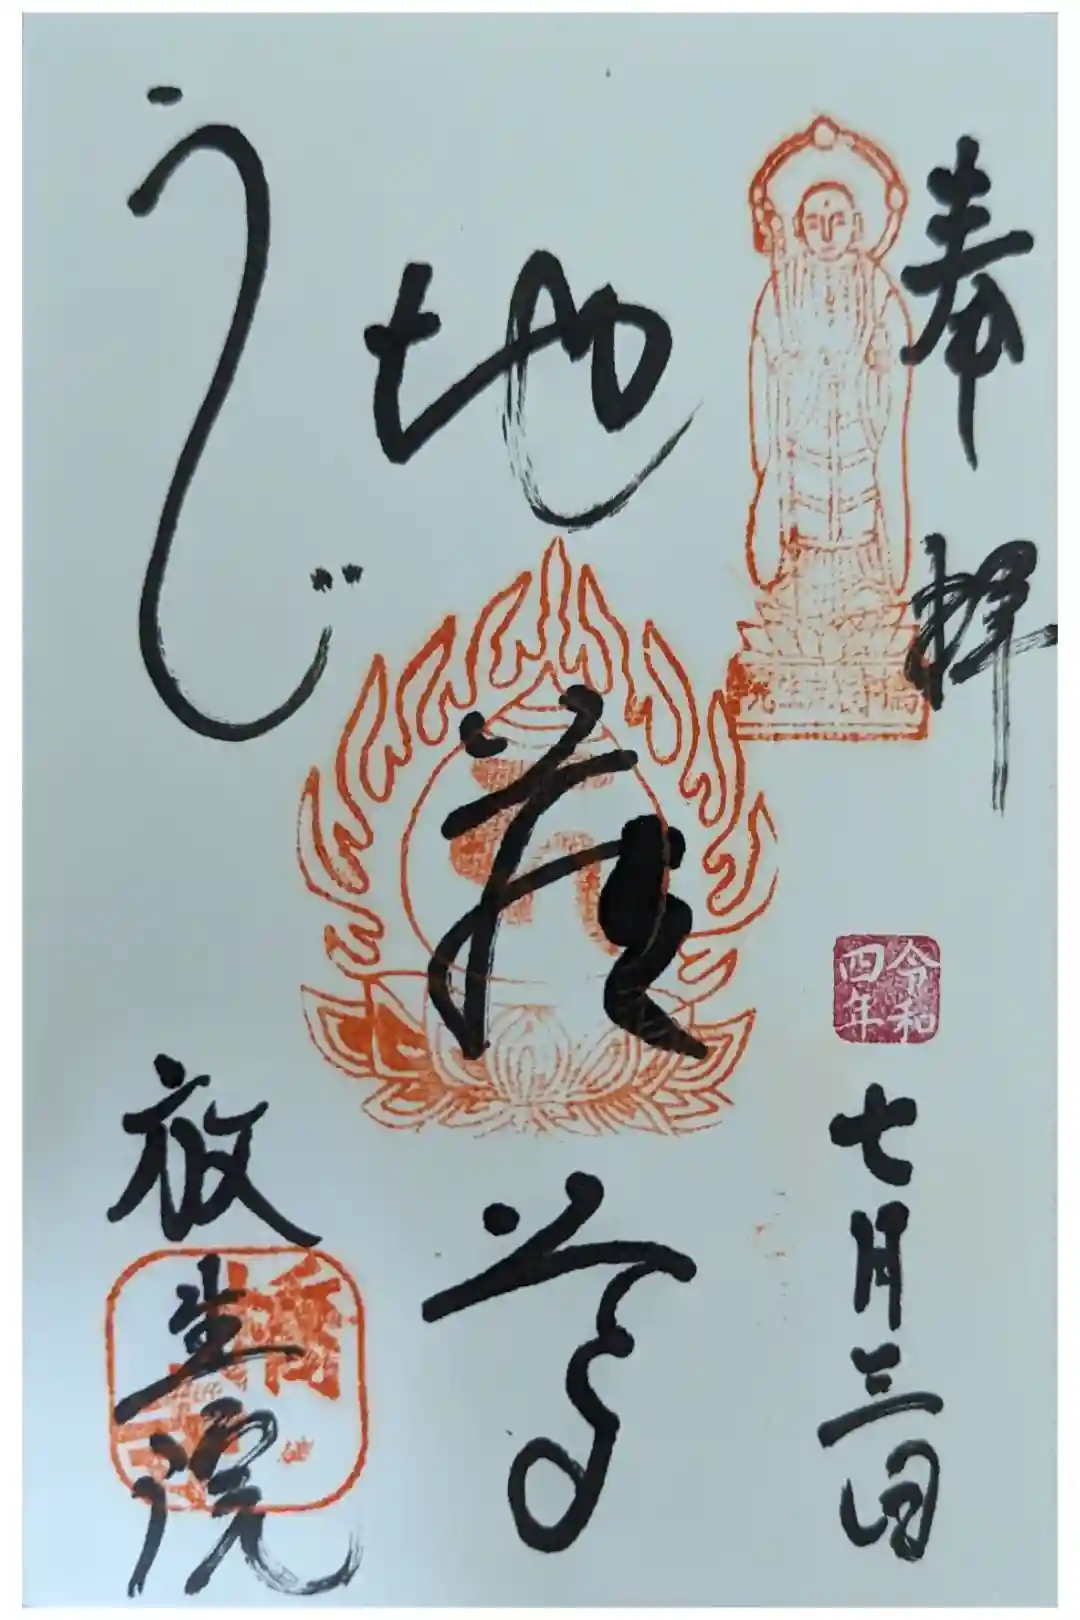 奉拝
令和
四年
七月三日
地蔵尊
うじ
放生院